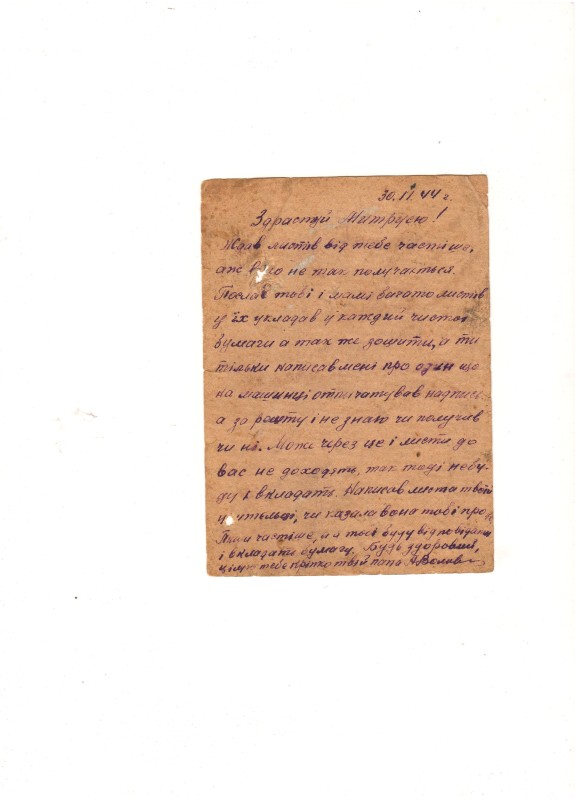 30. II 44 г.
Здрастуй Митрусю!
Ждав листів від тебе частіше,
аж воно не так получається.
Послав тобі і мамі багато листів
у їх укладав у каждий чистої
бумаги а так же зошити, а ти
тільки написав мені про один що
на машинці отпічатував надписі
а за решту і не знаю чи получав
чи ні. Може через це і листи до
вас не доходять, так тоді не бу-
ду вкладать. Написав листа твоїй
учительці, чи казала вона тобі про
Пиши частіше, и я тобі буду відповідати
і вкладати бумагу. Будь здоровий,
цілую тебе кріпко твій папа